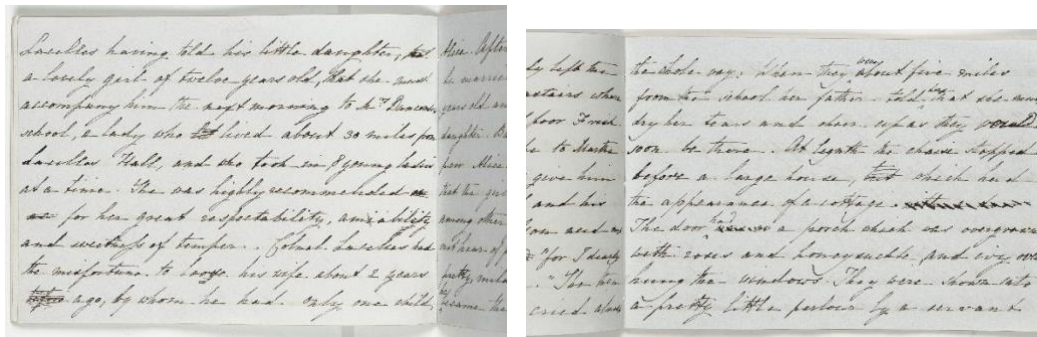 Lascelles having told his little daughter,
a lovely girl of twelve years old, that she must
accompany him the next morning to Mrs Duncan's
school, a lady who lived about 30 miles from
Lascelles Hall, and who took in 8 young ladies
at a time. She was highly recommended
for her great respectability, amiability
and sweetness of temper. Colnel Lascelles had
the misfortune to loose his wife about 2 years
ago, by whom he had only one child,
Alice. After
he married
years old an
daughter
poor Alice
that the
among other
not hear of
pretty, mild
became the
ly left the
stairs where
floor I read
to Martha
give him
and his
and my
"for I dearly
. " The
cried
the whole way. When they were about five miles
from the school her father told her that she must
dry her tears and cheer up as they would
soon be there. At length the chaise stopped
before a large house, which had
the appearance of a cottage.
The door had a porch which was overgrown
with roses and honeysuckle, and ivy over
hung the windows. They were shown into
a pretty little parlour by a servant